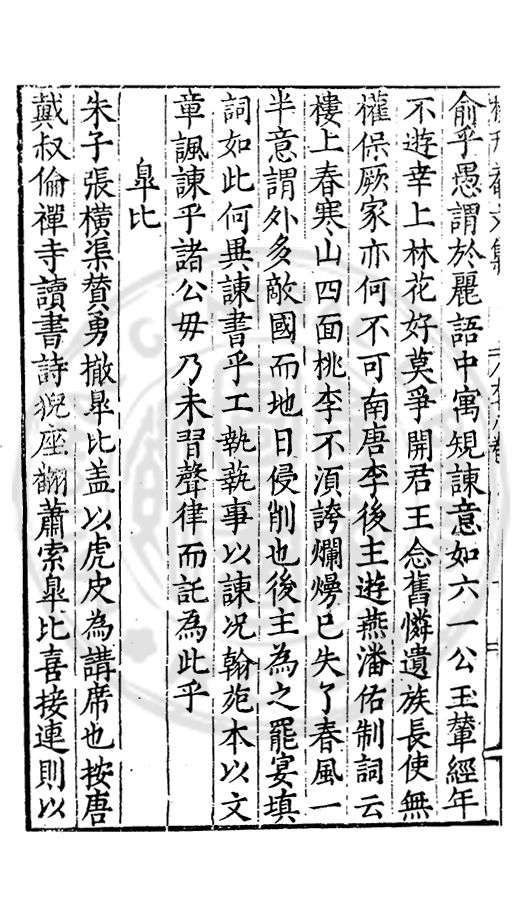 俞乎愚謂於麗語中寓規諫意如六一公玉輦經年
不遊幸上林花好莫爭開君王念舊憐遺族長使無
權保厥家亦何不可南唐李後主遊燕潘佑制詞云
樓上春寒山四面桃李不湏誇爛熳已失了春風一
半意謂外多敵國而地日侵削也後主為之罷宴填
詞如此何異諫書乎工執藝事以諫况翰苑本以文
章諷諫乎諸公毋乃未習聲律而託為此乎
皐比
朱子張橫渠賛勇撤皐比盖以虎皮為講席也按唐
戴叔倫禪寺讀書詩猊座翻蕭索皐比喜接連則以